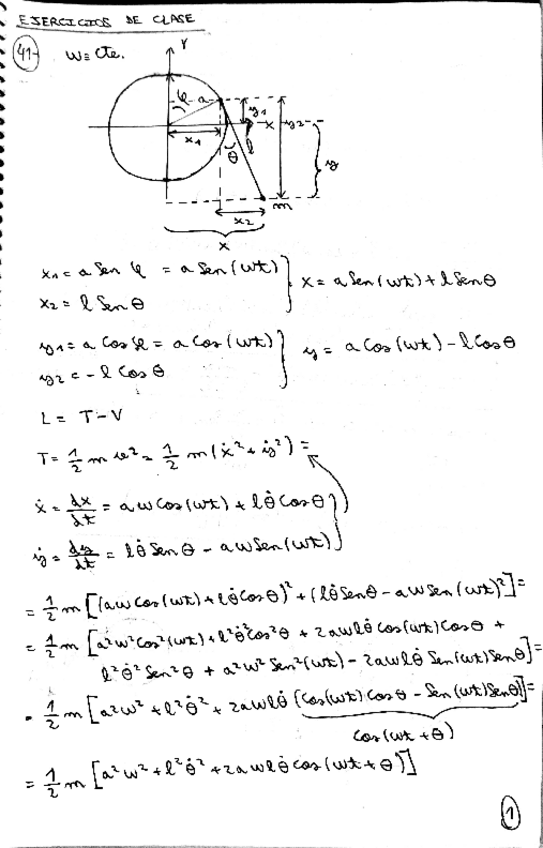 EJERCICIOS DE CLASE
41- W= Cte.
Y
φ a
y1
x y2
x1
l
θ
y
m
x2
x
x1 = a Sen φ = a Sen(wt)
x = a Sen(wt) + l Senθ
x2 = l Sen θ
y1 = a Cos φ = a Cos(wt)
y = a Cos(wt) - l Cosθ
y2 = - l Cos θ
L = T-V
T = 1/2 m v² = 1/2 m (ẋ² + ẏ²) =
ẋ = dx/dt = a w Cos(wt) + l θ̇ Cosθ
ẏ = dy/dt = l θ̇ Senθ - a w Sen(wt)
= 1/2 m [(aw cos(wt) + l θ̇ cosθ)² + (l θ̇ Senθ - a w Sen(wt)²] =
= 1/2 m [a²w² cos²(wt) + l² θ̇² cos²θ + 2awl θ̇ cos(wt) Cosθ +
l² θ̇² Sen²θ + a²w² Sen²(wt) - 2awl θ̇ Sen(wt) Senθ] =
= 1/2 m [a²w² + l² θ̇² + 2awl θ̇ (Cos(wt) Cosθ - Sen(wt) Senθ)] =
Cos(wt + θ)
= 1/2 m [a²w² + l² θ̇² + 2awl θ̇ cos(wt + θ)]
1